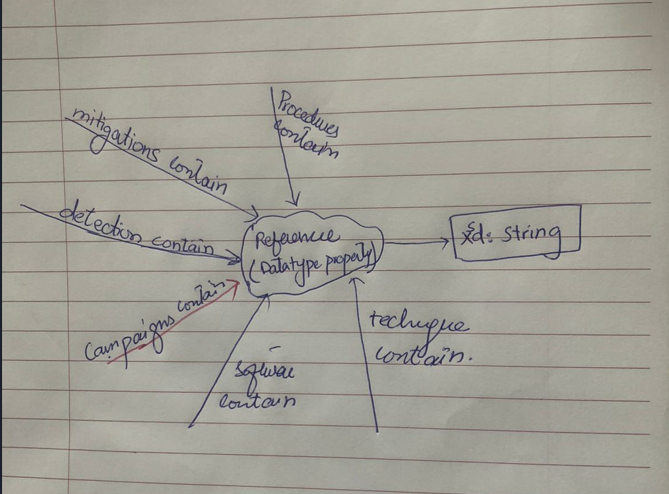 Procedures
contain
mitigations contain
detection contain
Reference
(Datatype property)
xsd: string
campaigns contain
software
contain
technique
contain.